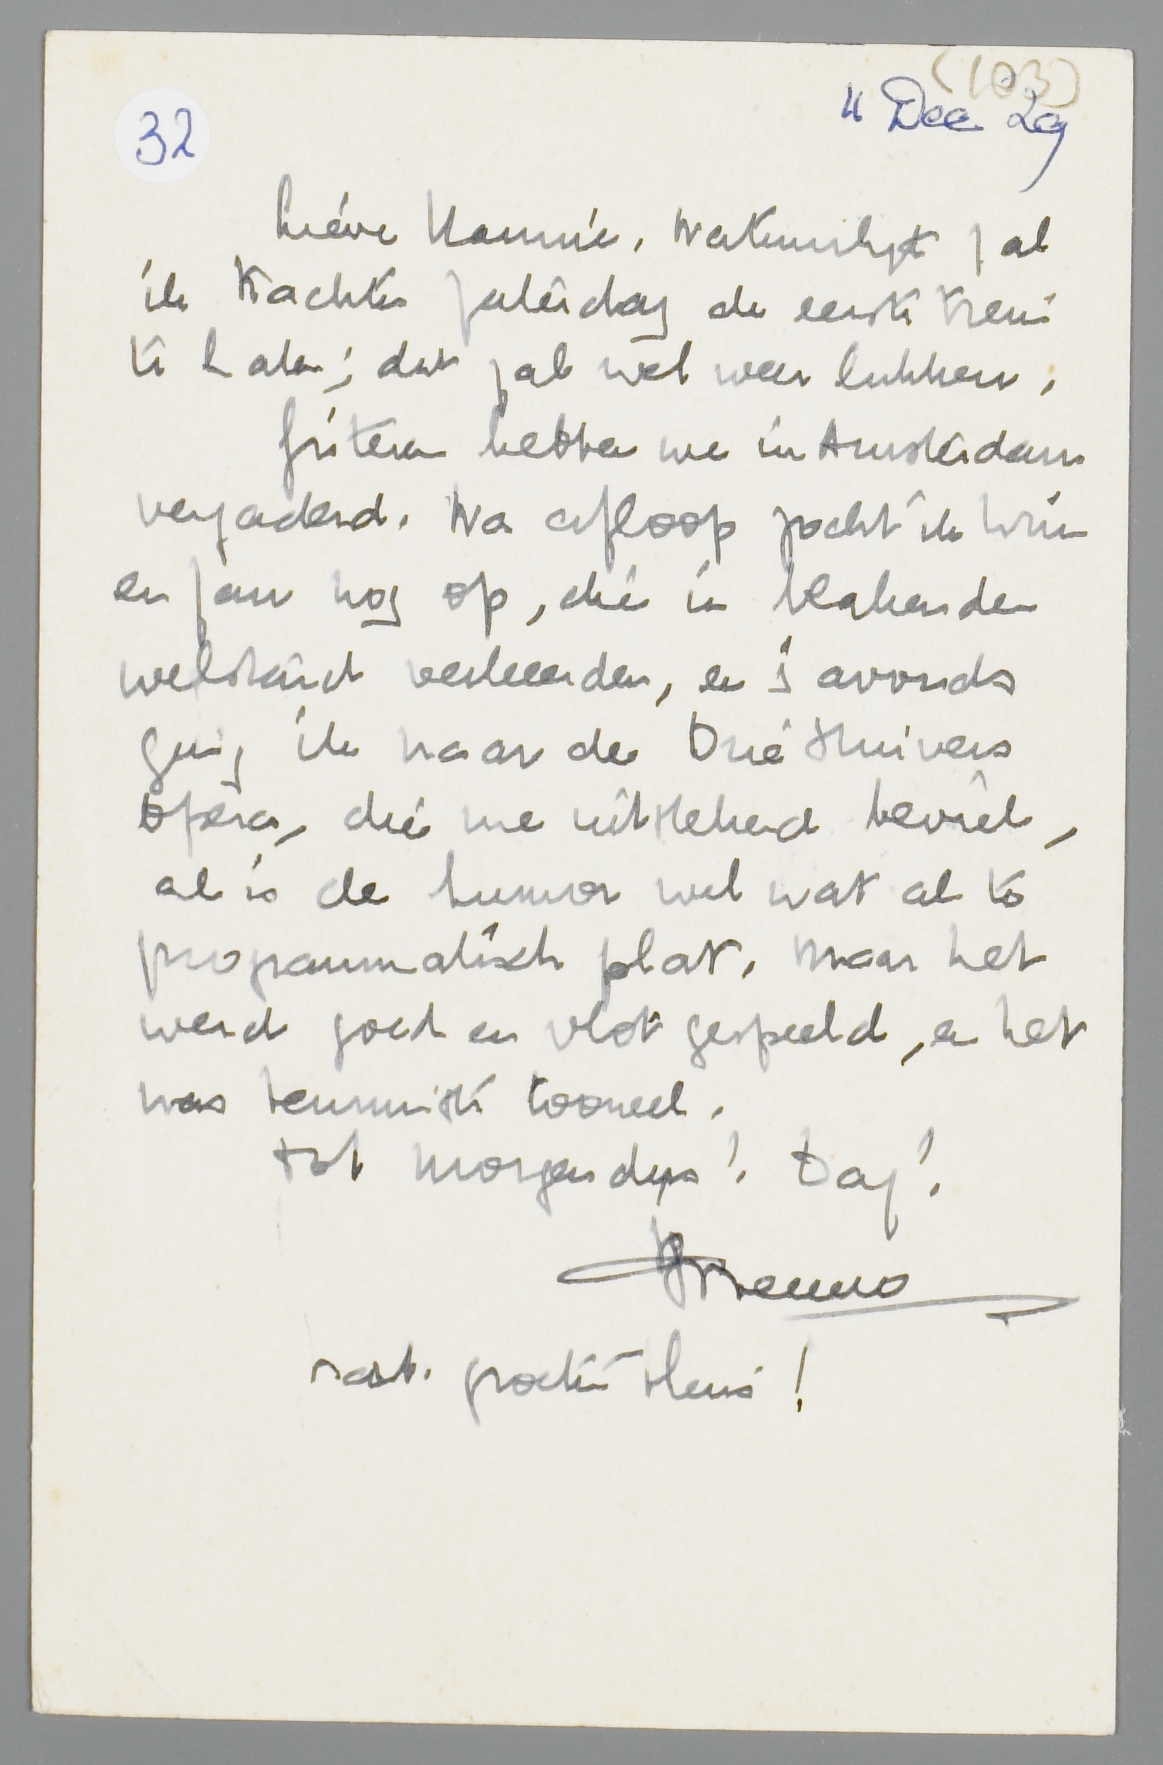 (103)
4 Dec 29
32
Lieve Hannie, Natuurlijk zal
ik trachten zaterdag de eerste trein
te halen; dat zal wel weer lukken.
Gisteren hebben we in Amsterdam
vergaderd. Na afloop zocht ik Wim
en Jan nog op, die in blakenden
welstand verkeerden, en 's avonds
ging ik naar de Drie Stuivers
Opera, die me uitstekend beviel,
al is de humor wel wat al te
programmatisch plat. Maar het
werd goed en vlot gespeeld, en het
was tenminste tooneel.
Tot morgen dus! Dag!
Menno
hart. groeten thuis!